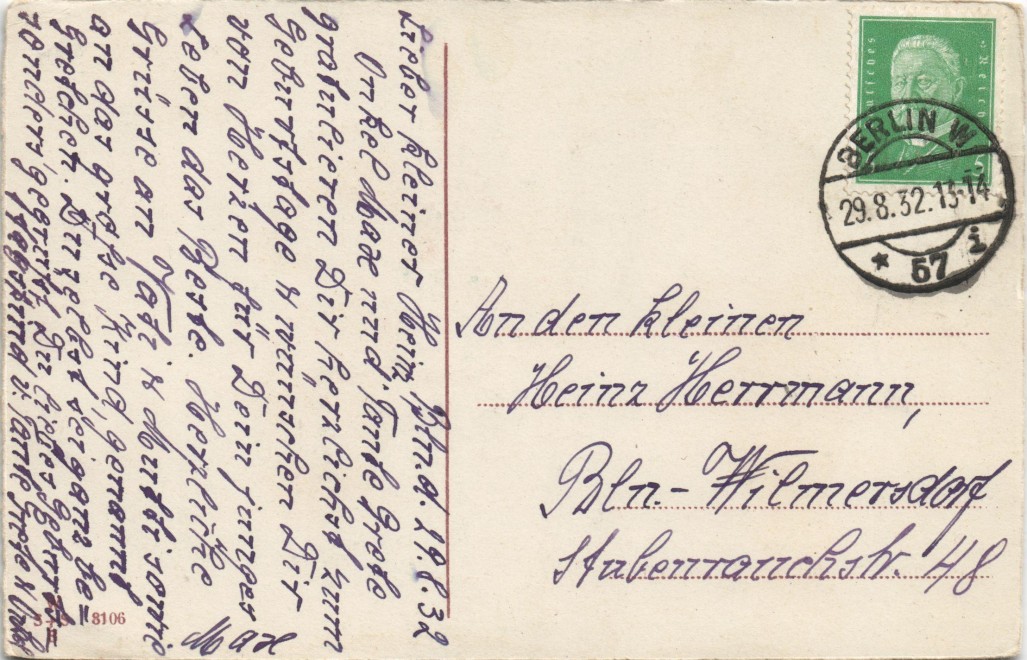 Bln. d. 29.8.32
Lieber kleiner Heinz,
Onkel Max und Tante Grete
gratulieren Dir herzlichst zum
Geburtstage & wünschen Dir
von Herzen für Dein junges
Leben das Beste. Herzliche
Grüsse an Vati & Mutti sowie
an das große Kind, genannt
Gretchen.
sondern
Max
Deutsches Reich
5
BERLIN W
29.8.32.13-14
* 57 i
An den kleinen
Heinz Herrmann,
Bln.-Wilmersdorf
Stubenrauchstr. 48
8106